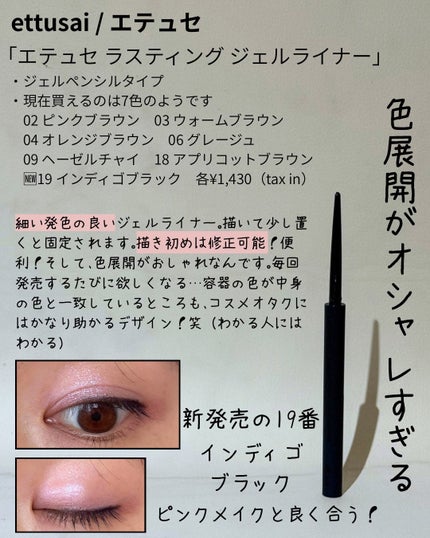 ettusai / エテュセ
「エテュセ ラスティング ジェルライナー」
・ジェルペンシルタイプ
・現在買えるのは7色のようです
02 ピンクブラウン 03 ウォームブラウン
04 オレンジブラウン 06 グレージュ
09 ヘーゼルチャイ 18 アプリコットブラウン
🆕19 インディゴブラック 各¥1,430（tax in）
細い発色の良いジェルライナー。描いて少し置
くと固定されます。描き初めは修正可能！便
利！そして、色展開がおしゃれなんです。毎回
発売するたびに欲しくなる…容器の色が中身
の色と一致しているところも、コスメオタクに
はかなり助かるデザイン！笑（わかる人には
わかる）
色展開がオシャレすぎる
新発売の19番
インディゴ
ブラック
ピンクメイクと良く合う！